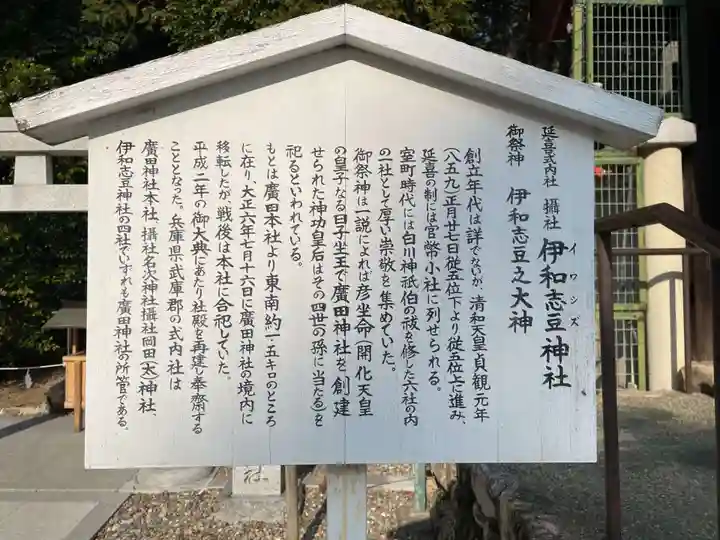 延喜式内社 攝社 伊和志豆神社
イワシズ
御祭神 伊和志豆之大神
創立年代は詳でないが、清和天皇貞観元年
(八五九)正月廿七日従五位下より従五位上に進み、
延喜の制には官幣小社に列せられる。
室町時代には白川神祇伯の祓を修した六社の内
の一社として厚い崇敬を集めていた。
御祭神は一説によれば彦坐命(開化天皇
の皇子なる日子坐王で廣田神社を創建
せられた神功皇后はその四世の孫に当たる)を
祀るといわれている。
もとは廣田本社より東南約一・五キロのところ
に在り大正六年七月十六日に廣田神社の境内に
移転したが、戦後は本社に合祀していた。
平成二年の御大典にあたり社殿を再建し奉齋する
こととなった。兵庫県武庫郡の式内社は
廣田神社本社、攝社名次神社攝社岡田(太)神社、
伊和志豆神社の四社でいずれも廣田神社の所管である。
社